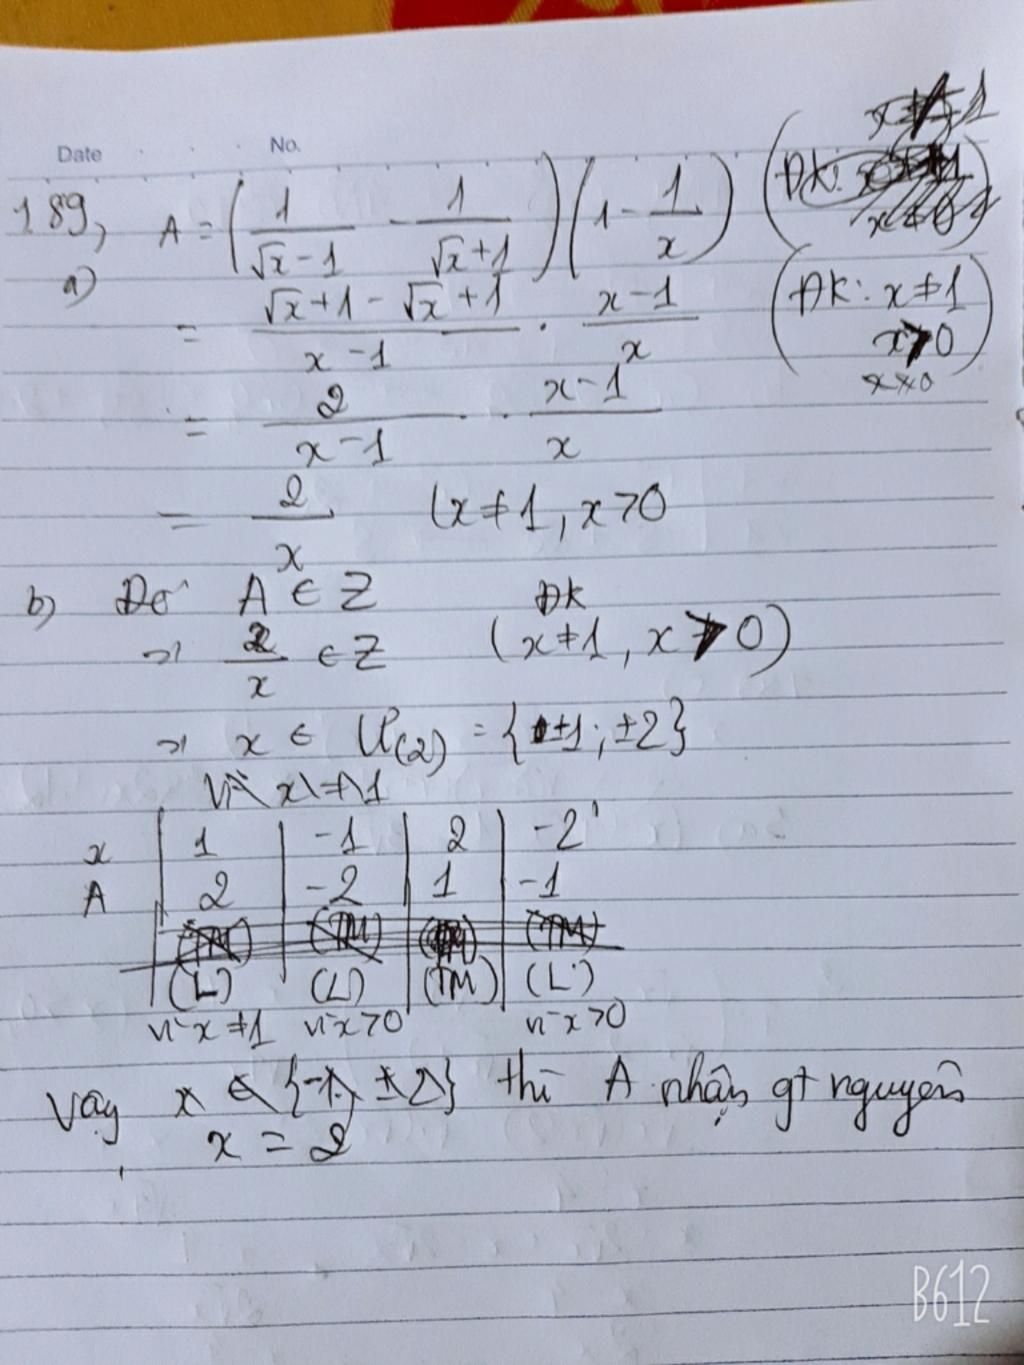 Date No.
189, A = (1/(√x - 1) - 1/(√x + 1)) (1 - 1/x)
a)
= (√x + 1 - √x + 1)/(x - 1) · (x - 1)/x
(ĐK: x ≠ 1
x > 0)
x ≠ 0
= 2/(x - 1) · (x - 1)/x
= 2/x (x ≠ 1, x > 0
b) Để A ∈ Z
ĐK
=> 2/x ∈ Z (x ≠ 1, x > 0)
=> x ∈ Ư(2) = {±1; ±2}
Vì x ≠ 1
x | 1 | -1 | 2 | -2
A | 2 | -2 | 1 | -1
(TM) (TM) (TM)
(L) (L) (TM) (L)
vì x ≠ 1 vì x > 0 vì x > 0
Vậy x ∈ {-1; ±2} thì A nhận gt nguyên
x = 2
B612